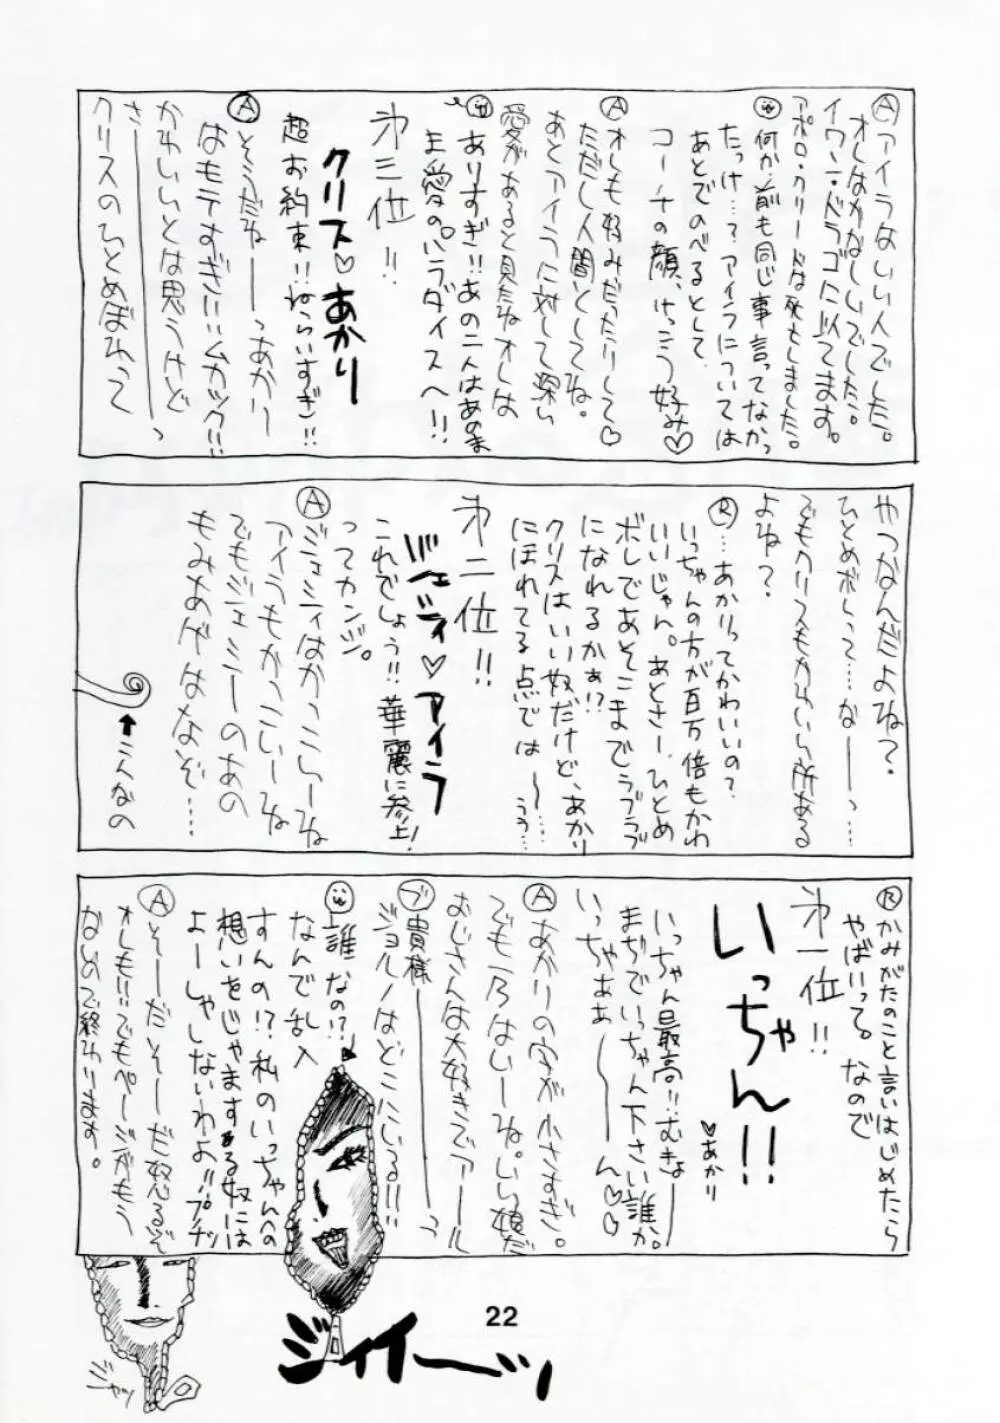 Ⓐアイラはいい人でした。
オレはかなしいでした。
イワン・ドラゴに似てます。
アポロ・クリードは死としました。
何か、前も同じ事言ってなかっ
たっけ…？アイラについては
あとでのべるとして、
コーナの顔、けっこう好み♡
Ⓐオレも好みだったりして♡
ただし人間としてね。
あとアイラに対して深い
愛があると見たね オレは
ありすぎ!!あの二人はあのまま
愛のパラダイスへ!!
第三位!!
クリス♡あかり
超お約束!!ねらいすぎ!!
Ⓐそうだねーーっあかり
はモテすぎ!!!ムカツク!!
かわいいとは思うけど
さーーーーっ
クリスのひとめぼれって
やつなんだよね？
ひとめボレって…なーーっ…
でもクリスもかわいい所ある
よね？
Ⓡ…あかりってかわいいの？
いっちゃんの方が百万倍もかわ
いいじゃん。あとさー、ひとめ
ボレであそこまでラブラブ
になれるかぁ!?
クリスはいい奴だけど、あかり
にほれてる点では〜…うぅ…
第二位!!
ジェシィ♡アイラ
これでしょう!!華麗に参上!
ってカンジ。
Ⓐジェシィはかっこいーね
アイラもかっこいーね
でもジェシーのあの
もみあげはなぞ…
↑こんなの
Ⓡかみがたのこと言いはじめたら
やばいってる。なので
第一位!!
いっちゃん!!
♡あかり
いっちゃん最高!!むきょーー
まぢでいっちゃん下さい誰か。
いっちゃぁぁーーーん♡♡
Ⓐあかりの字が小さすぎ。
でも一乃はいーね。いい娘だ
おじさんは大好きでアール
ブ貴様ーーーーっ
ジョルノはどこにいる!!!
誰なの!?
なんで乱入
すんの!?私のいっちゃんへの
想いをじゃまする奴には
よーしゃしないわよ!!プチッ
Ⓐそーだそーだ怒るぞ
オレも!!!でもページがもう
ないので終わります。
ジィイーッ
ジャッ
22